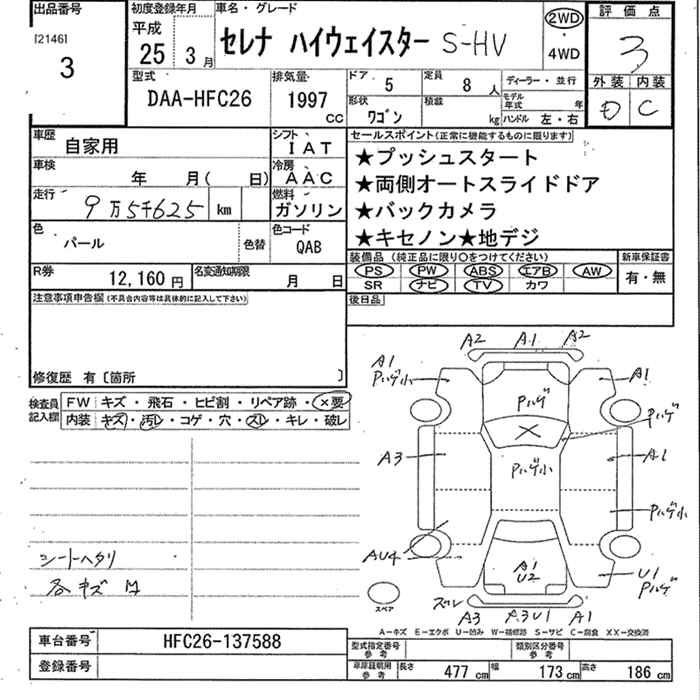 出品番号
[2146]
3
初度登録年月
平成
25 3月
車名・グレード
セレナ ハイウェイスター S-HV
2WD
・
4WD
評価点
3
外装 内装
D C
型式
DAA-HFC26
排気量
1997
CC
ドア
5
定員
8人
ディーラー・並行
形状
ワゴン
積載
kg
モデル年式 年
ハンドル 左・右
車歴 自家用
シフト
IAT
セールスポイント(正常に機能するものに限ります)
★プッシュスタート
★両側オートスライドドア
★バックカメラ
★キセノン★地デジ
車検 年 月( 日)
冷房
AAC
走行 9万5千625 km
燃料
ガソリン
色 パール 色替
色コード
QAB
装備品(純正品に限り○をつけてください)
PS PW ABS エアB AW
SR ナビ TV カワ
新車保証書
有・無
R券 12,160円
名変通知期限 月 日
後日品
注意事項申告欄(不具合内容等は具体的に記入して下さい)
修復歴 有〔箇所 〕
検査員記入欄
FW キズ・飛石・ヒビ割・リペア跡・×要
内装 キズ・汚レ・コゲ・穴・スレ・キレ・破レ
シートヘタリ
各キズ
A2 A1 A2
A1
Pハゲ小
A1
Pハゲ
Pハゲ
A3
Pハゲ小
A1
Pハゲ小
AU4
A1
U2
U1
Pハゲ
スペア
スレ
A3 A3U1 A1
A-キズ E-エクボ U-凹み W-補修跡 S-サビ C-腐食 XX-交換済
車台番号 HFC26-137588
登録番号
型式指定番号
参考
類別区分番号
参考
車庫証明用
参考
長さ 477cm 幅 173cm 高さ 186cm